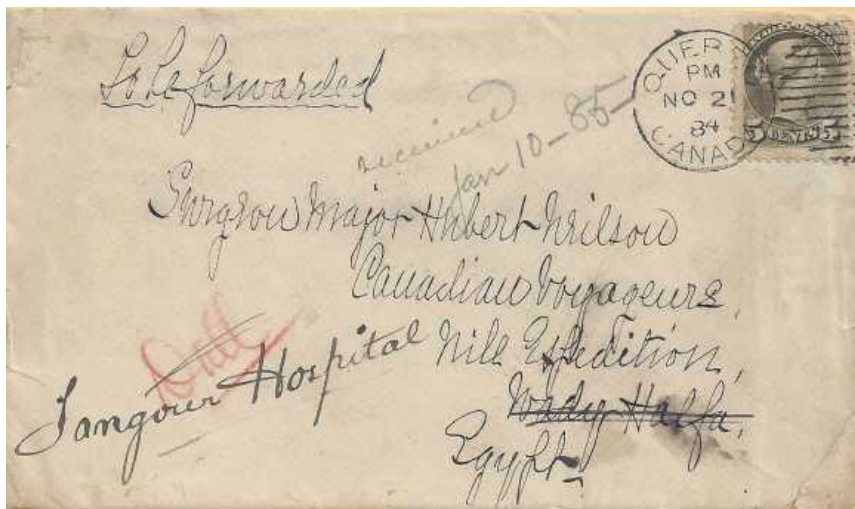 To be forwarded
QUEBEC
PM
NO 21
84
CANADA
5 CENTS 5
received
Jan 10-85-
Surgeon Major Hubert Neilson
Canadian Voyageurs,
Nile Expedition,
Wady Halfa,
Egypt-
Dall
Sangour Hospital